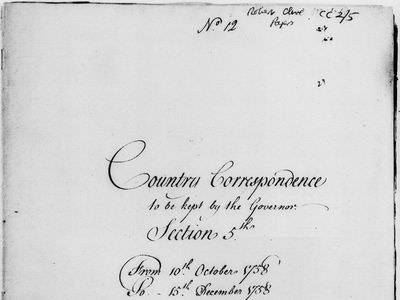 Robert Clive CC 2/5
Papers
No. 12
Country Correspondence
to be kept by the Governor.
Section 5th
From 10th October 1758
To - 15th December 1758